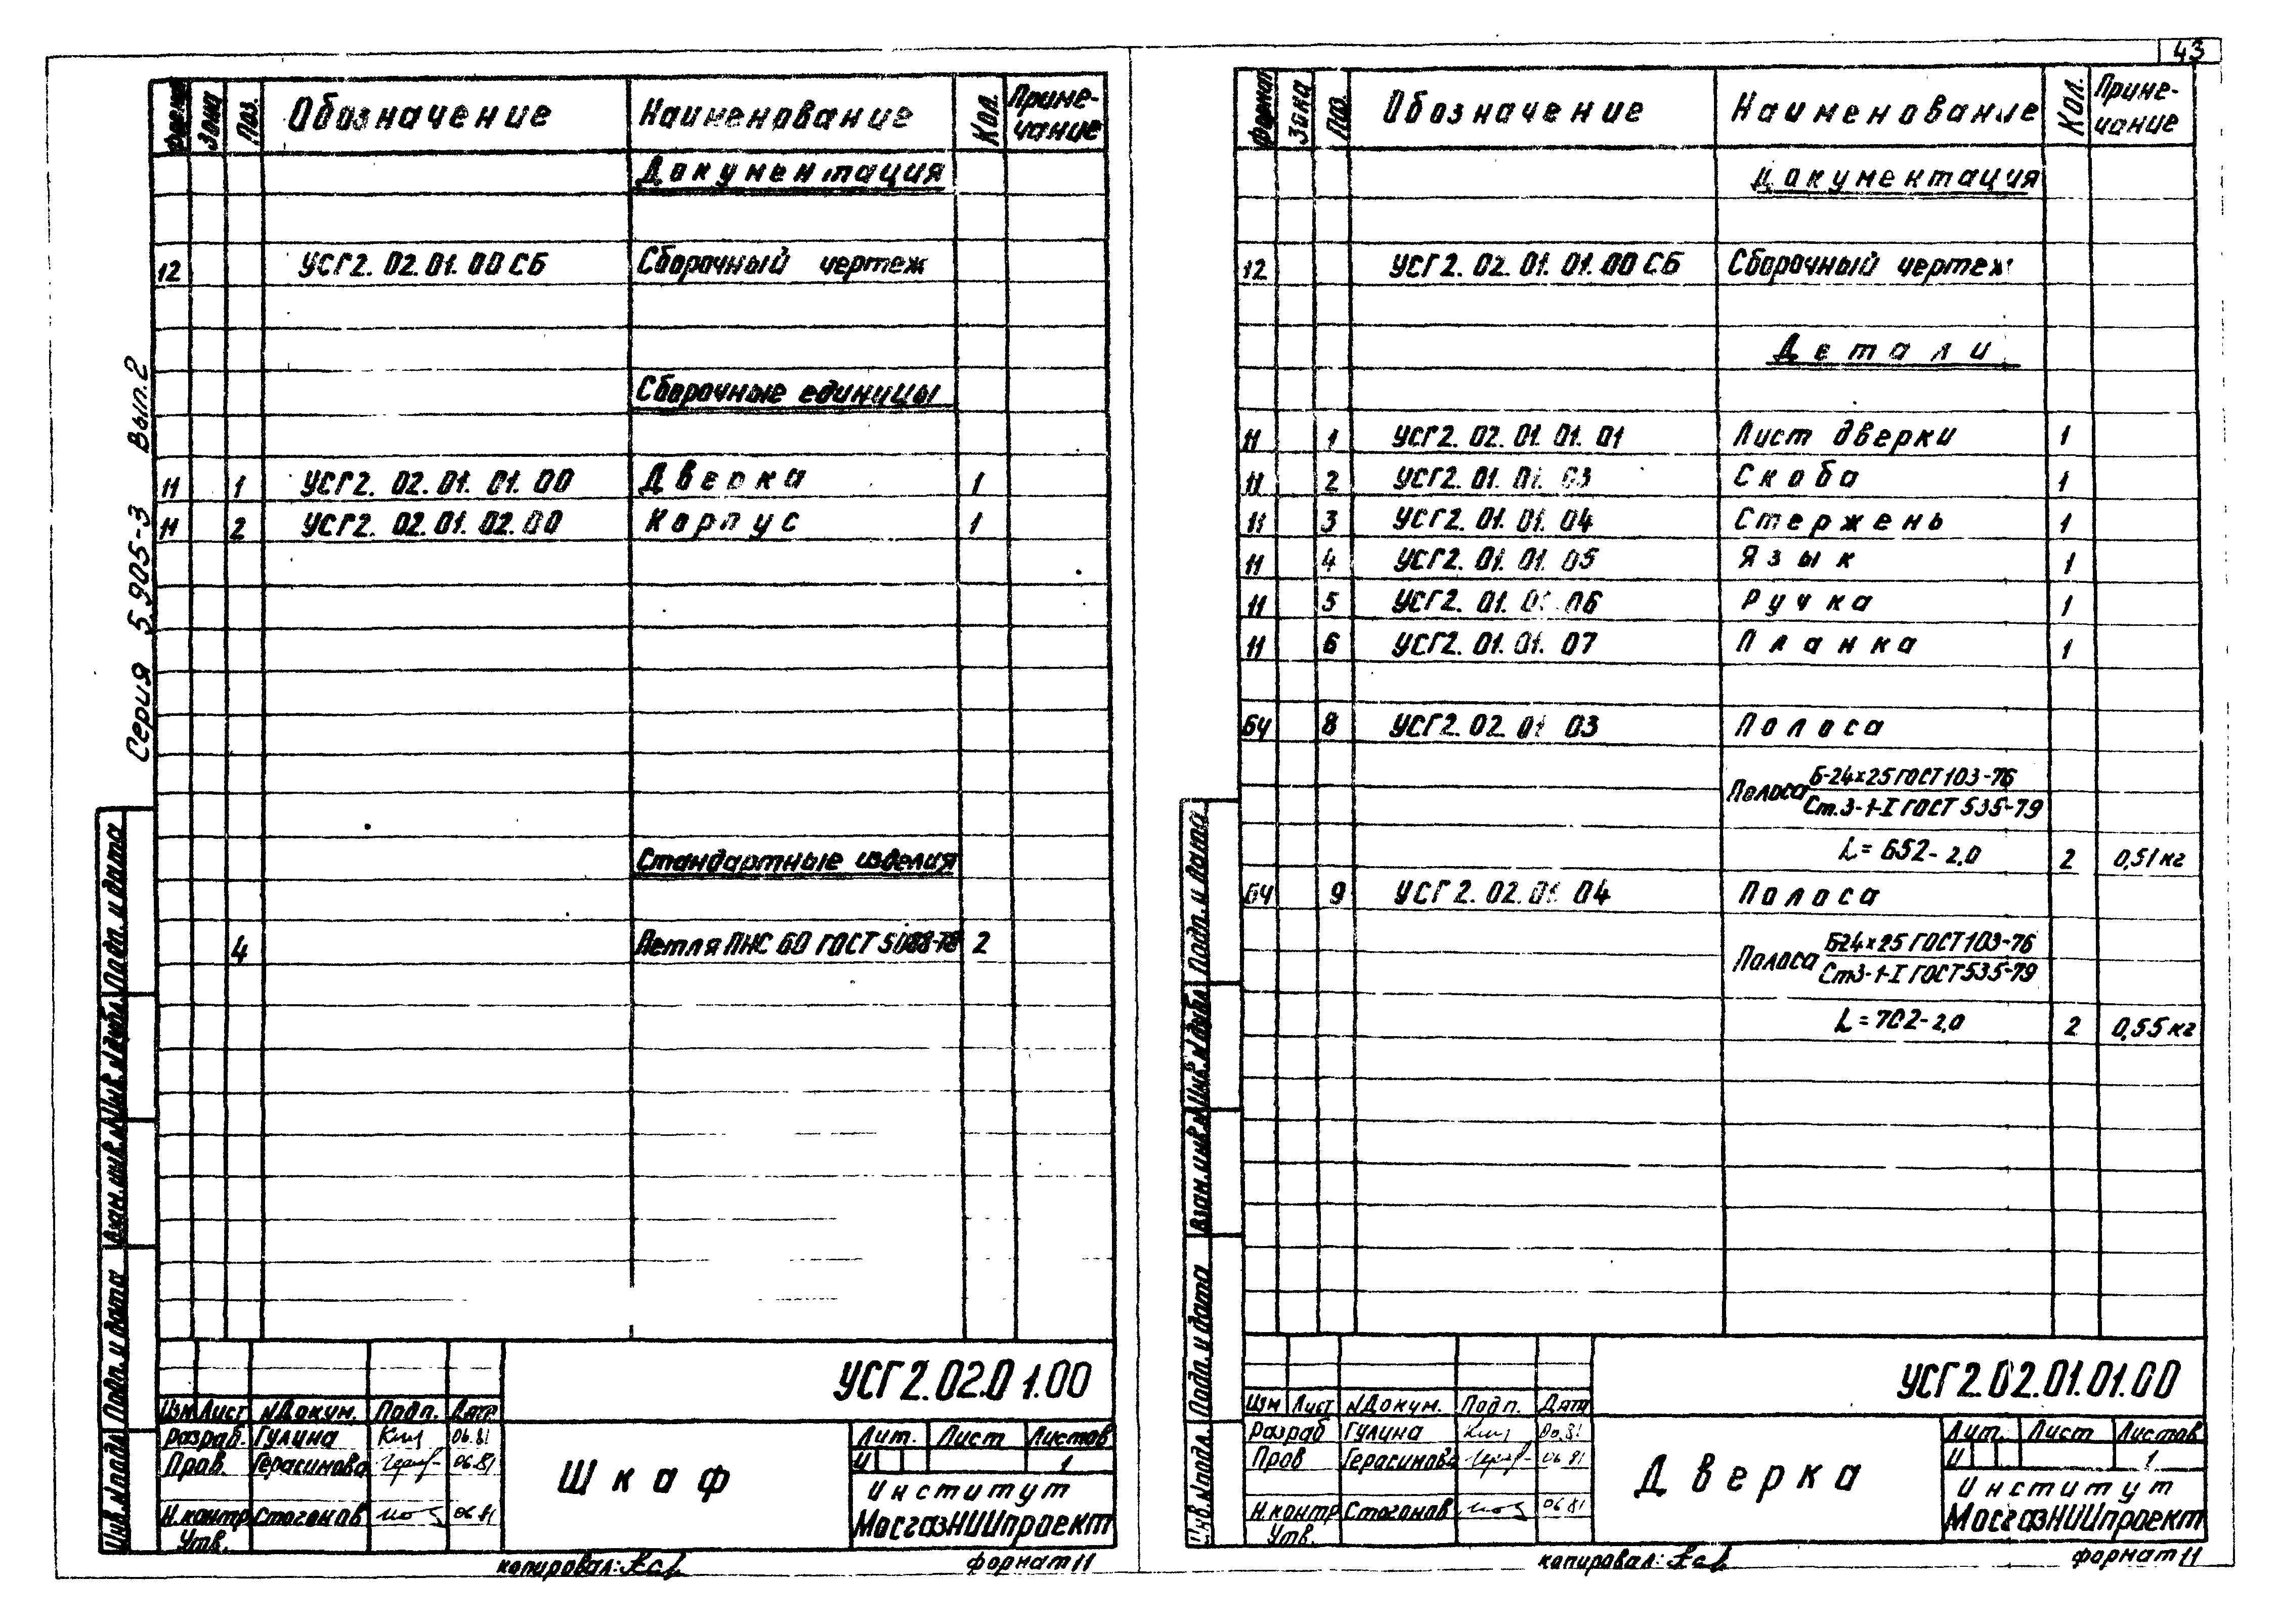 43
Серия 5.905-3 Вып.2
Формат Зона Поз. Обозначение Наименование Кол. Приме-
чание
Документация
12 УСГ2. 02. 01. 00 СБ Сборочный чертеж
Сборочные единицы
11 1 УСГ2. 02. 01. 01. 00 Дверка 1
11 2 УСГ2. 02. 01. 02. 00 Корпус 1
Стандартные изделия
4 Петля ПНС 60 ГОСТ 5088-78 2
Инв.№подл. Подп. и дата Взам.инв.№ Инв.№дубл. Подп. и дата
УСГ2.02.01.00
Изм Лист №Докум. Подп. Дата
Разраб. Гулина 06.81
Пров. Герасимова 06.81
Н.контр Стогонов 06.81
Утв.
Шкаф
Лит. Лист Листов
И 1
Институт
МосгазНИИпроект
копировал: формат 11
Формат Зона Поз. Обозначение Наименование Кол. Приме-
чание
Документация
12 УСГ2. 02. 01. 01. 00 СБ Сборочный чертеж
Детали
11 1 УСГ2. 02. 01. 01. 01 Лист дверки 1
11 2 УСГ2. 01. 01. 03 Скоба 1
11 3 УСГ2. 01. 01. 04 Стержень 1
11 4 УСГ2. 01. 01. 05 Язык 1
11 5 УСГ2. 01. 01. 06 Ручка 1
11 6 УСГ2. 01. 01. 07 Планка 1
БЧ 8 УСГ2. 02. 01 03 Полоса
Полоса Б-24х25 ГОСТ 103-76
Ст.3-1-I ГОСТ 535-79
L= 652- 2,0 2 0,51 кг
БЧ 9 УСГ2. 02. 01. 04 Полоса
Полоса Б24х25 ГОСТ 103-76
Ст3-1-I ГОСТ 535-79
L= 702- 2,0 2 0,55 кг
Инв.№подл. Подп. и дата Взам.инв.№ Инв.№дубл. Подп. и дата
УСГ2.02.01.01.00
Изм Лист №Докум. Подп. Дата
Разраб Гулина
Пров Герасимова 06.81
Н.контр Стогонов 06.81
Утв.
Дверка
Лит. Лист Листов
И 1
Институт
МосгазНИИпроект
копировал: формат 11